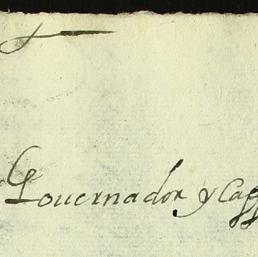 Gouernador y Capp